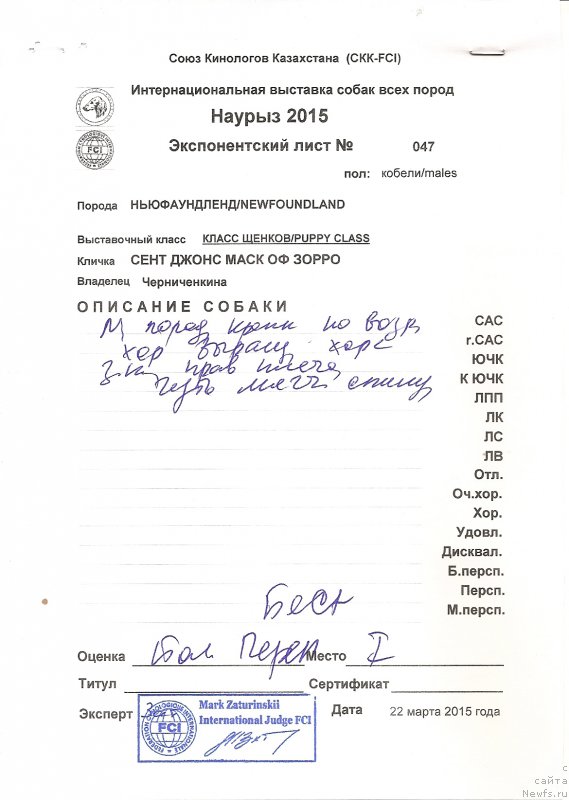 Союз Кинологов Казахстана (СКК-FCI)
Интернациональная выставка собак всех пород
Наурыз 2015
Экспонентский лист № 047
пол: кобели/males
Порода НЬЮФАУНДЛЕНД/NEWFOUNDLAND
Выставочный класс КЛАСС ЩЕНКОВ/PUPPY CLASS
Кличка СЕНТ ДЖОНС МАСК ОФ ЗОРРО
Владелец Черниченкина
ОПИСАНИЕ СОБАКИ
М пород крепк по возр
САС
хор выращ хор
г.САС
прав
ЮЧК
чуть мягч спину
К ЮЧК
ЛПП
ЛК
ЛС
ЛВ
Отл.
Оч.хор.
Хор.
Удовл.
Дисквал.
Б.персп.
Персп.
М.персп.
Бест
Оценка Бол Персп Место I
Титул Сертификат
Эксперт
Mark Zaturinskii
International Judge FCI
FCI
Дата 22 марта 2015 года
с
сайта
Newfs.ru